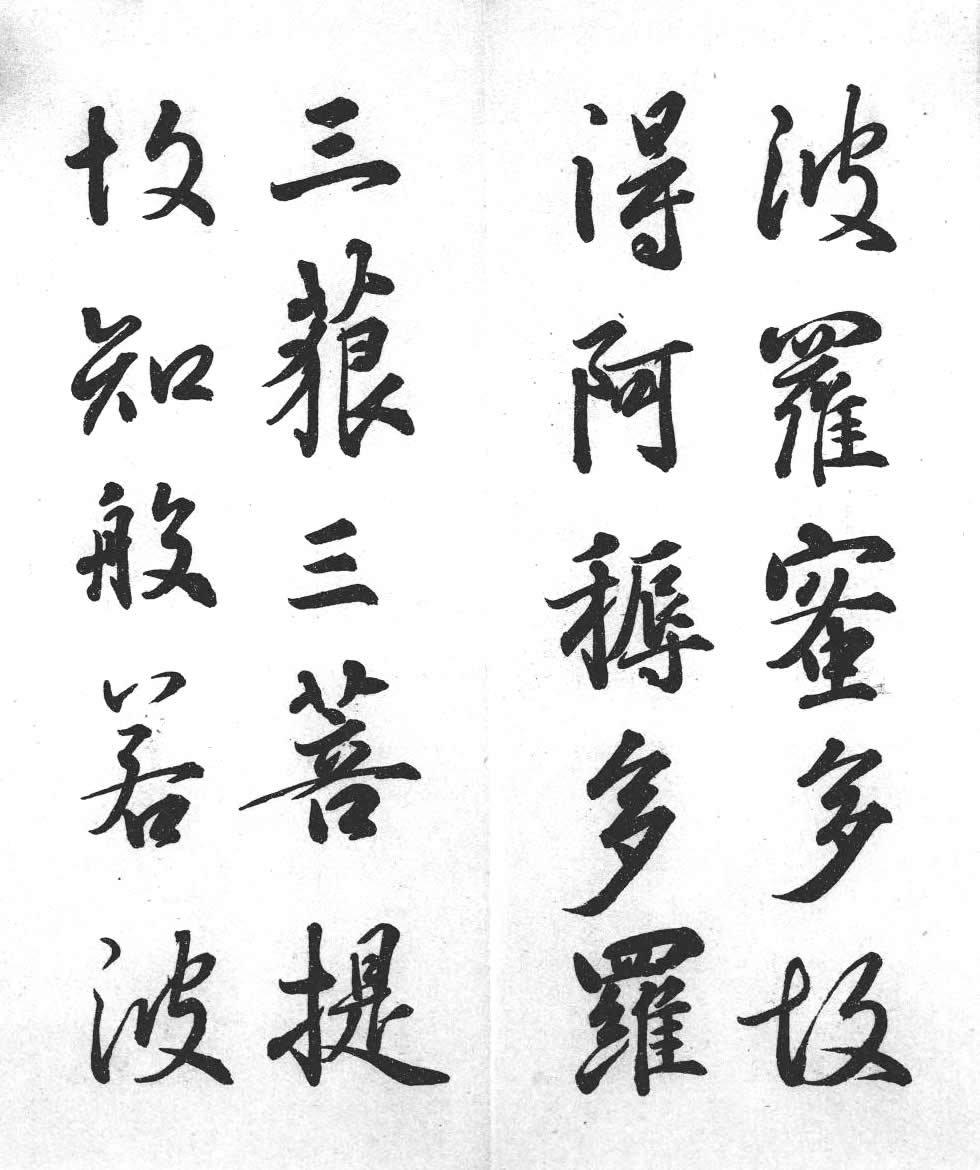 波羅蜜多故
得阿耨多羅
三藐三菩提
故知般若波